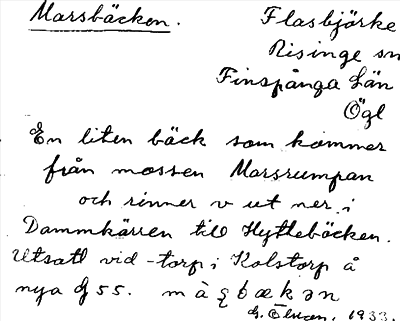 Marsbäcken. Flasbjörke
Risinge sn
Finspånga Län
Ögl
En liten bäck som kommer
från mossen Marsrumpan
och rinner v ut ner i
Dammkärren till Hyttebäcken.
Utsatt vid -torp i Kolstorp å
nya G 55.
G. 1933.